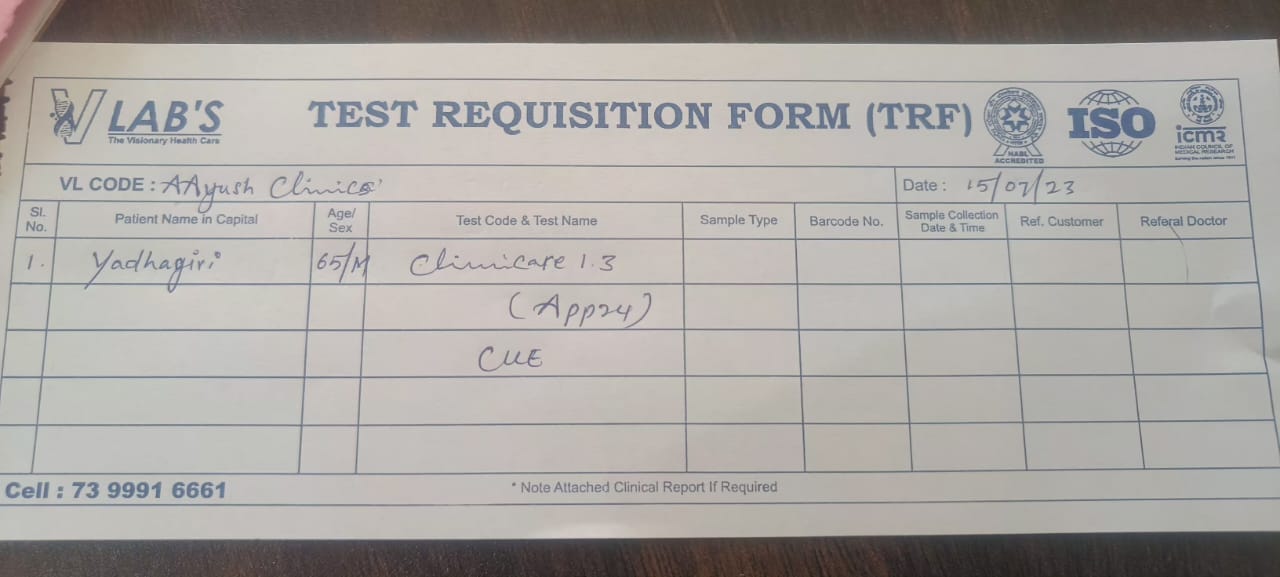 V LAB'S
The Visionary Health Care
TEST REQUISITION FORM (TRF)
NABL
ACCREDITED
ISO
icmr
INDIAN COUNCIL OF
MEDICAL RESEARCH
Serving the nation since 1911
VL CODE : AAyush Clinics
Date : 15/07/23
Sl. No. Patient Name in Capital Age/ Sex Test Code & Test Name Sample Type Barcode No. Sample Collection Date & Time Ref. Customer Referal Doctor
1. Yadhagiri 65/M Clinicare 1.3
(App24)
CUE
Cell : 73 9991 6661 * Note Attached Clinical Report If Required